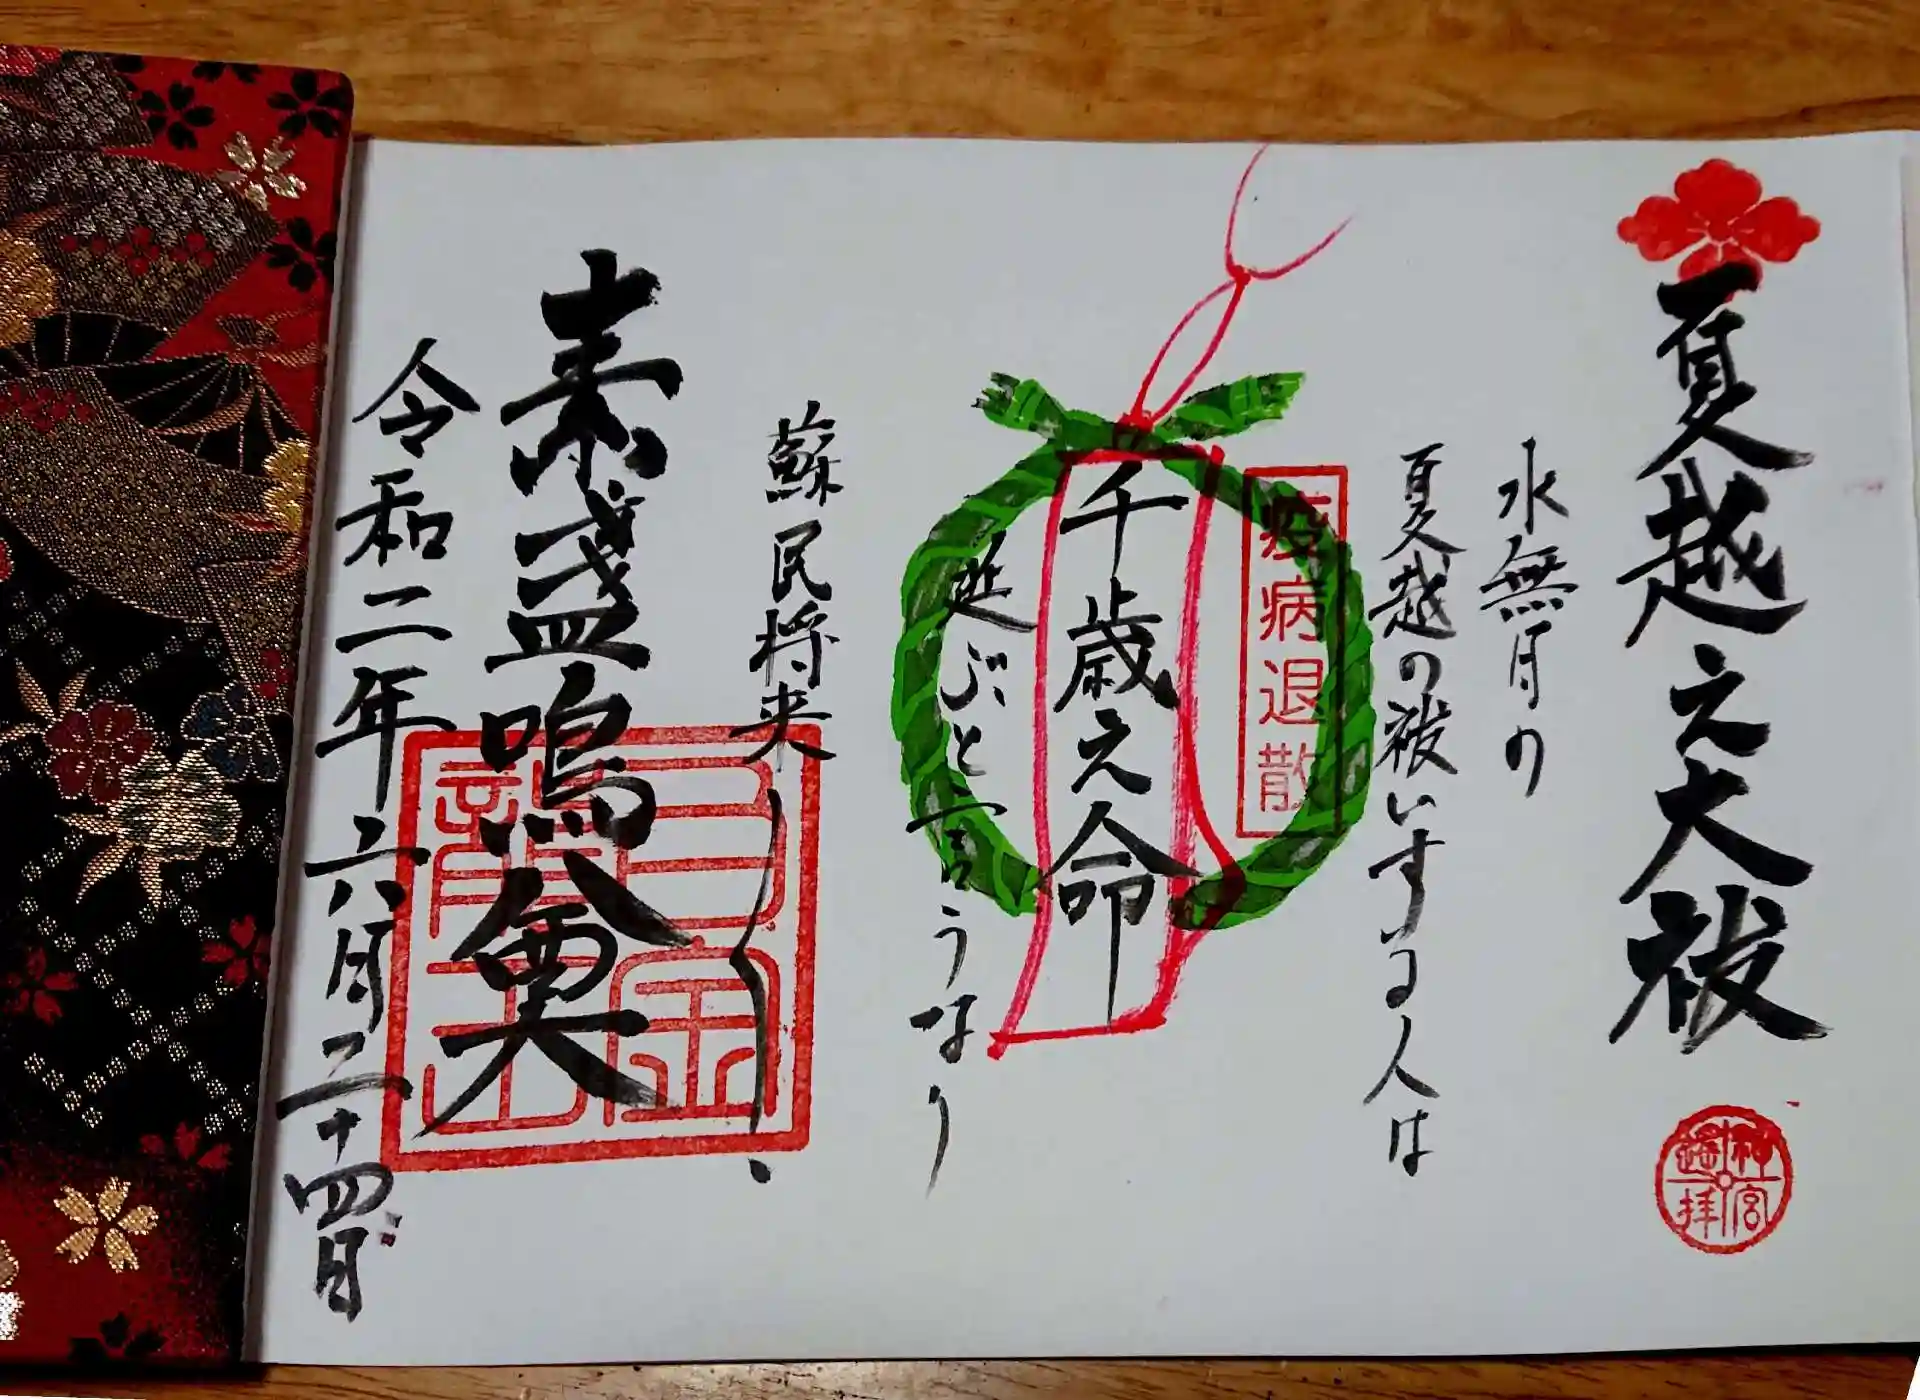 夏越之大祓
神宮
遙拝
水無月の
夏越の祓いする人は
疫病退散
千歳之命
延ぶと言うなり
蘇民将来
素盞嗚尊
令和二年六月二十四日